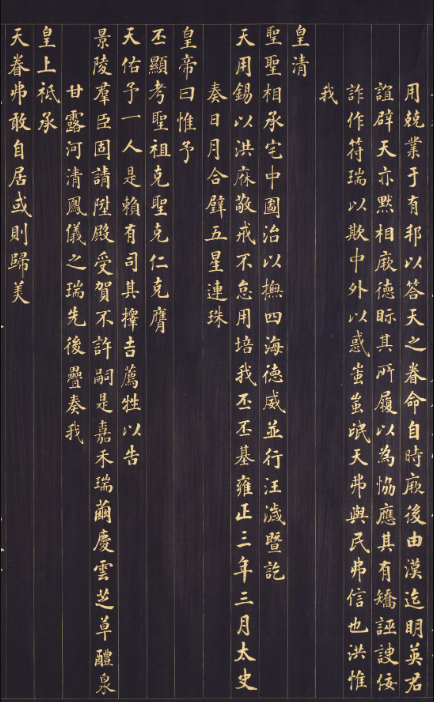 用兢業于有邦以答天之眷命自時厥後由漢迄明英君
誼辟天亦黙相厥德眎其所履以為恊應其有矯誣諛佞
詐作符瑞以欺中外以惑蚩蚩氓天弗與民弗信也洪惟
我
皇清
聖聖相承宅中圖治以撫四海德威並行汪濊暨訖
天用錫以洪庥敬戒不怠用培我丕丕基雍正三年三月太史
奏日月合璧五星連珠
皇帝曰惟予
丕顯考聖祖克聖克仁克膺
天佑予一人是賴有司其擇吉薦牲以告
景陵羣臣固請陞殿受賀不許嗣是嘉禾瑞繭慶雲芝草醴泉
甘露河清鳳儀之瑞先後疊奏我
皇上祗承
天眷弗敢自居或則歸美